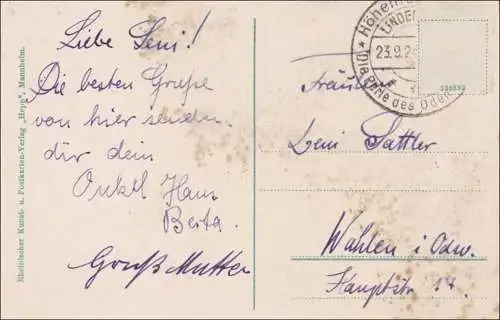 Liebe Leni!
Die besten Grüße
von hier senden
dir dein
Onkel Hans
Berta.
Großmutter
Rheinischer Kunst- u. Postkarten-Verlag „Hepp“, Mannheim.
LINDE
23.9.2
Die Perle des Oden
136352
Fräulein
Leni Sattler
Wahlen i Odw.
Hauptstr. 14.